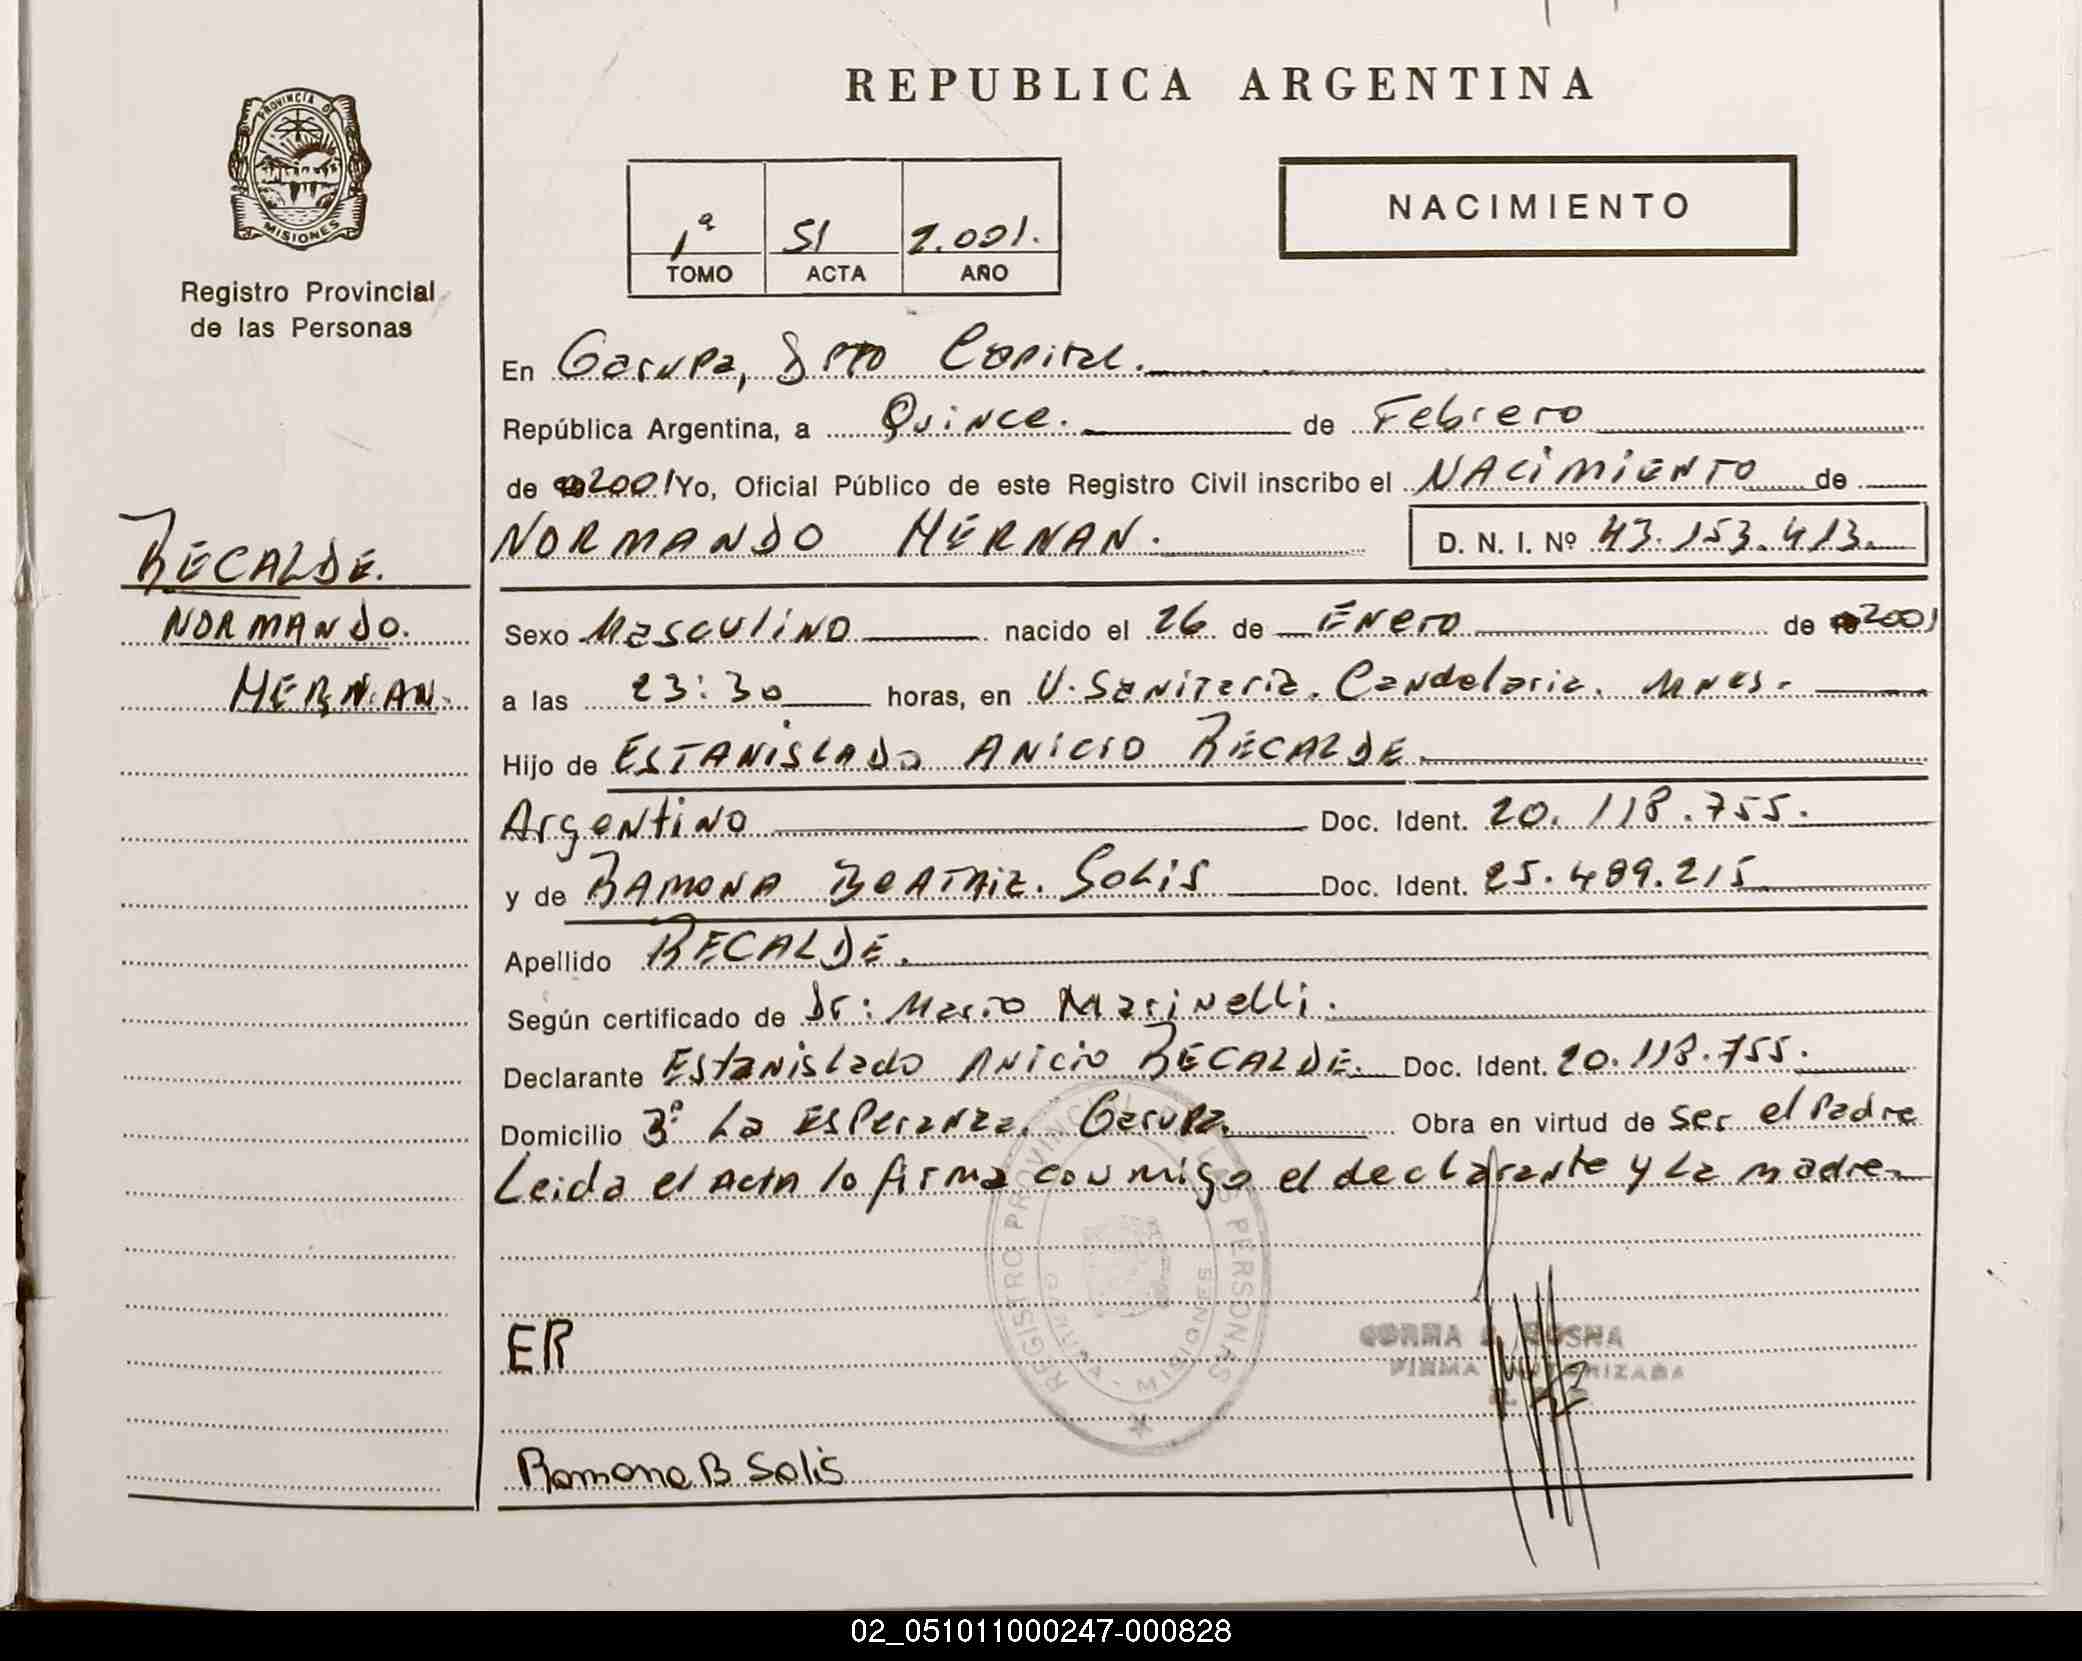 REPUBLICA ARGENTINA
PROVINCIA DE
MISIONES
Registro Provincial
de las Personas
1ª 51 2.001.
TOMO ACTA AÑO
NACIMIENTO
RECALDE.
NORMANDO.
HERNAN.
En Garupa, Dpto Capital.
República Argentina, a Quince. de Febrero
de 2001 Yo, Oficial Público de este Registro Civil inscribo el NACIMIENTO de
NORMANDO HERNAN. D. N. I. Nº 43.153.413.
Sexo Masculino nacido el 26 de Enero de 2001
a las 23:30 horas, en U. Sanitaria. Candelaria. Mnes.
Hijo de ESTANISLADO ANICIO RECALDE.
Argentino Doc. Ident. 20.118.755.
y de RAMONA BEATRIZ. SOLIS Doc. Ident. 25.489.215
Apellido RECALDE.
Según certificado de Dr: Mario Marinelli.
Declarante Estanislado Anicio RECALDE. Doc. Ident. 20.118.755.
Domicilio Bº La Esperanza. Garupa. Obra en virtud de ser el Padre
Leida el Acta lo firma conmigo el declarante y la madre
REGISTRO PROVINCIAL DE LAS PERSONAS
GARUPA - MISIONES
ER
FIRMA AUTORIZADA
Ramona B Solis
02_051011000247-000828